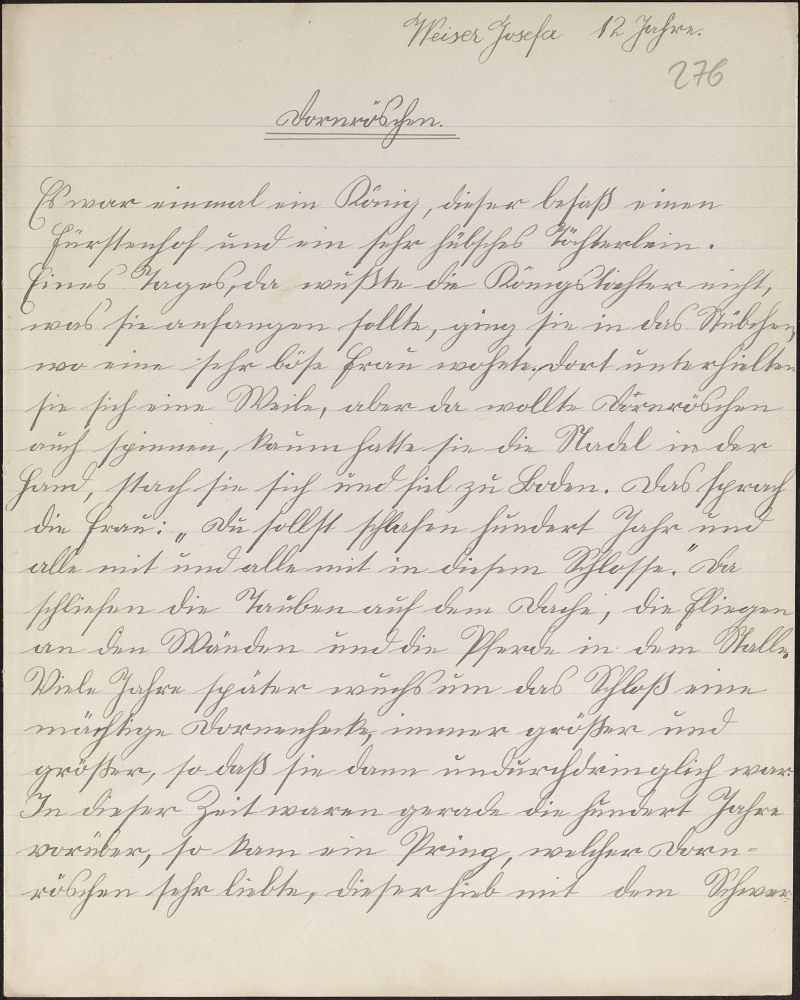 Weiser Josefa 12 Jahre.
276
Dornröschen.
Es war einmal ein König, dieser besaß einen
Fürstenhof und ein sehr hübsches Töchterlein.
Eines Tages, da wußte die Königstochter nicht,
was sie anfangen sollte, ging sie in das Stübchen,
wo eine sehr böse Frau wohnte. Dort unterhielten
sie sich eine Weile, aber da wollte Dörnröschen
auch spinnen, kaum hatte sie die Nadel in der
Hand, stach sie sich und fiel zu Boden. Das sprach
die Frau: „Du sollst schlafen hundert Jahr und
alle mit und alle mit in diesem Schlosse." Da
schliefen die Tauben auf dem Dache, die Fliegen
an den Wänden und die Pferde in dem Stalle.
Viele Jahre später wuchs um das Schloß eine
mächtige Dornenhecke, immer größer und
größer, so daß sie dann undurchdringlich war.
In dieser Zeit waren gerade die hundert Jahre
vorüber, so kam ein Prinz, welcher Dorn=
röschen sehr liebte, dieser hieb mit dem Schwer=